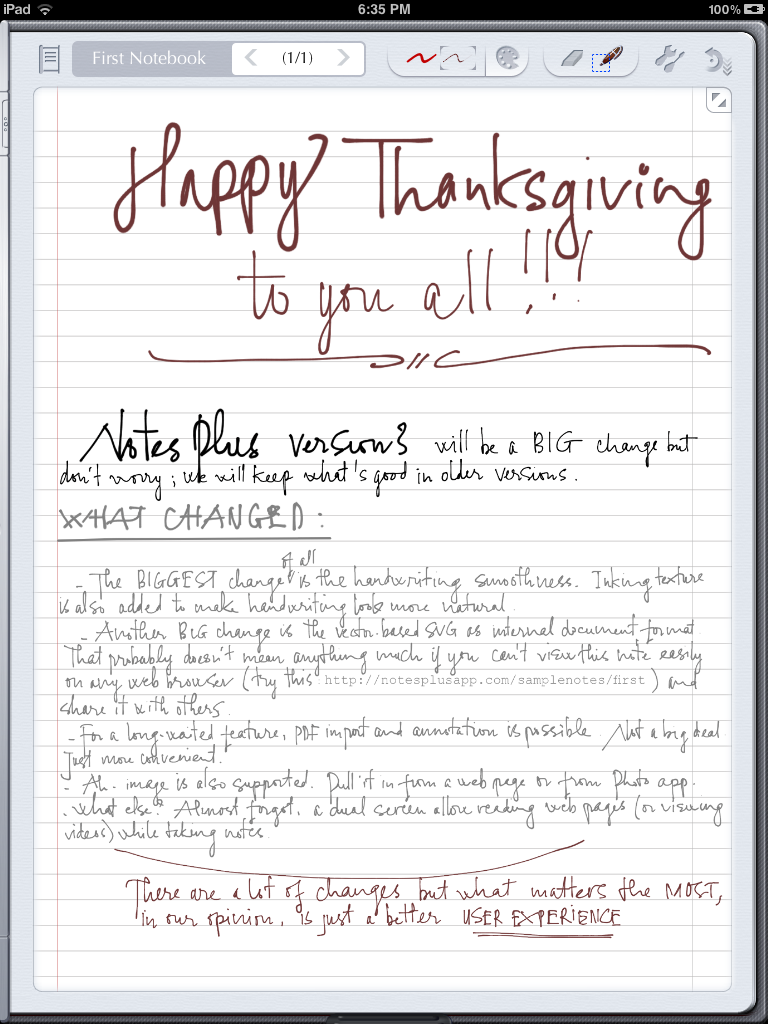 iPad 6:35 PM 100%
First Notebook (1/1)
Happy Thanksgiving
to you all!!!
Notes Plus version 3 will be a BIG change but
don't worry; we will keep what's good in older versions.
WHAT CHANGED:
of all
- The BIGGEST change is the handwriting smoothness. Inking texture
is also added to make handwriting looks more natural.
- Another BIG change is the vector-based SVG as internal document format.
That probably doesn't mean anything much if you can't view this note easily
on any web browser (try this http://notesplusapp.com/samplenotes/first) and
share it with others.
- For a long-waited feature, PDF import and annotation is possible. Not a big deal
Just more convenient.
- Ah. image is also supported. Pull it in from a web page or from Photo app.
. What else? Almost forgot, a dual screen allow reading web pages (or viewing
videos) while taking notes.
There are a lot of changes but what matters the MOST,
in our opinion, is just a better USER EXPERIENCE